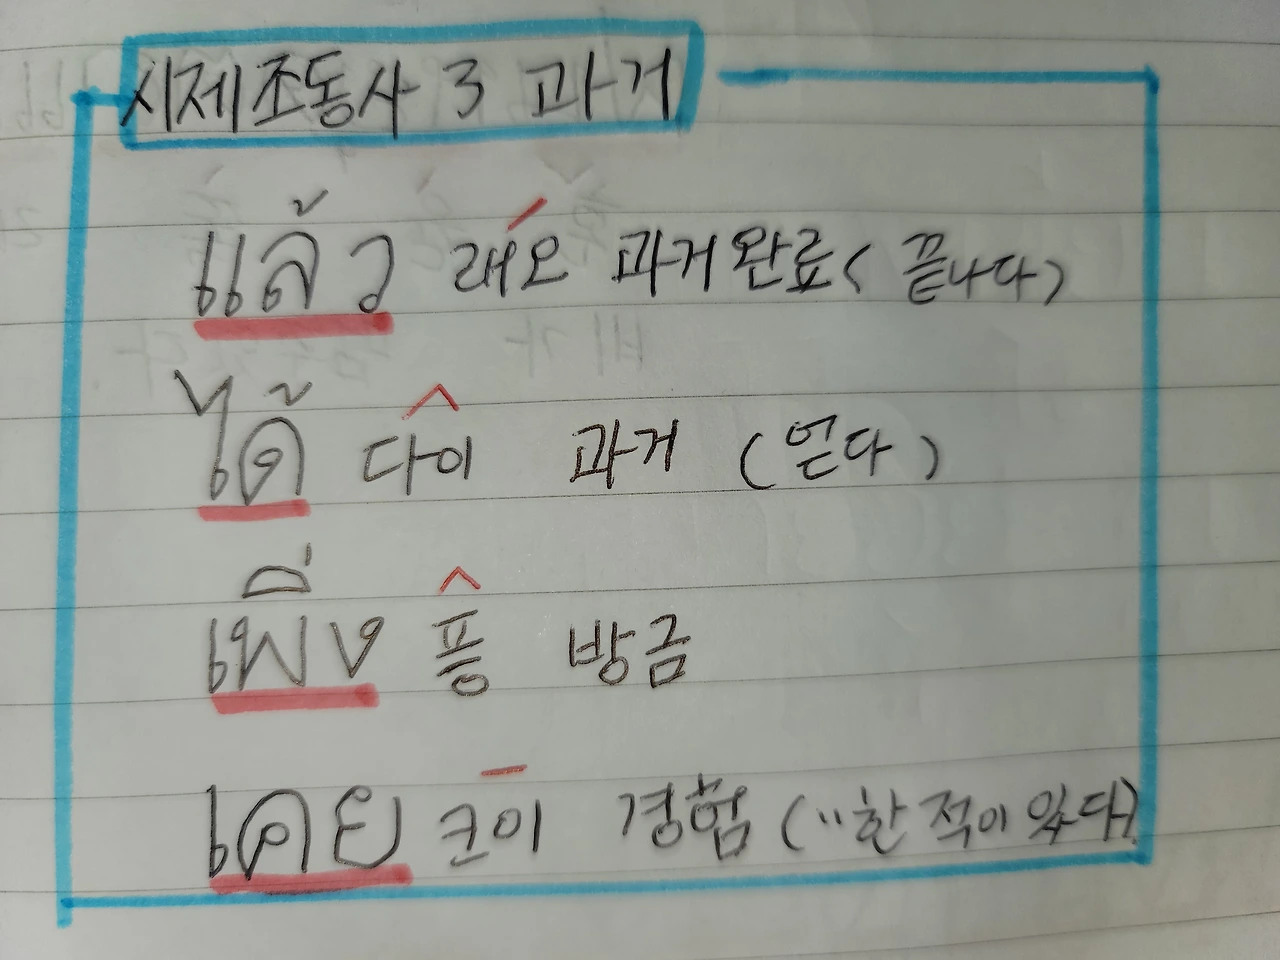 시제조동사 3 과거
แล้ว 래오 과거완료( 끝나다)
ได้ 다이 과거 (얻다)
เพิ่ง 픙 방금
เคย 크이 경험 (..한 적이 있다)